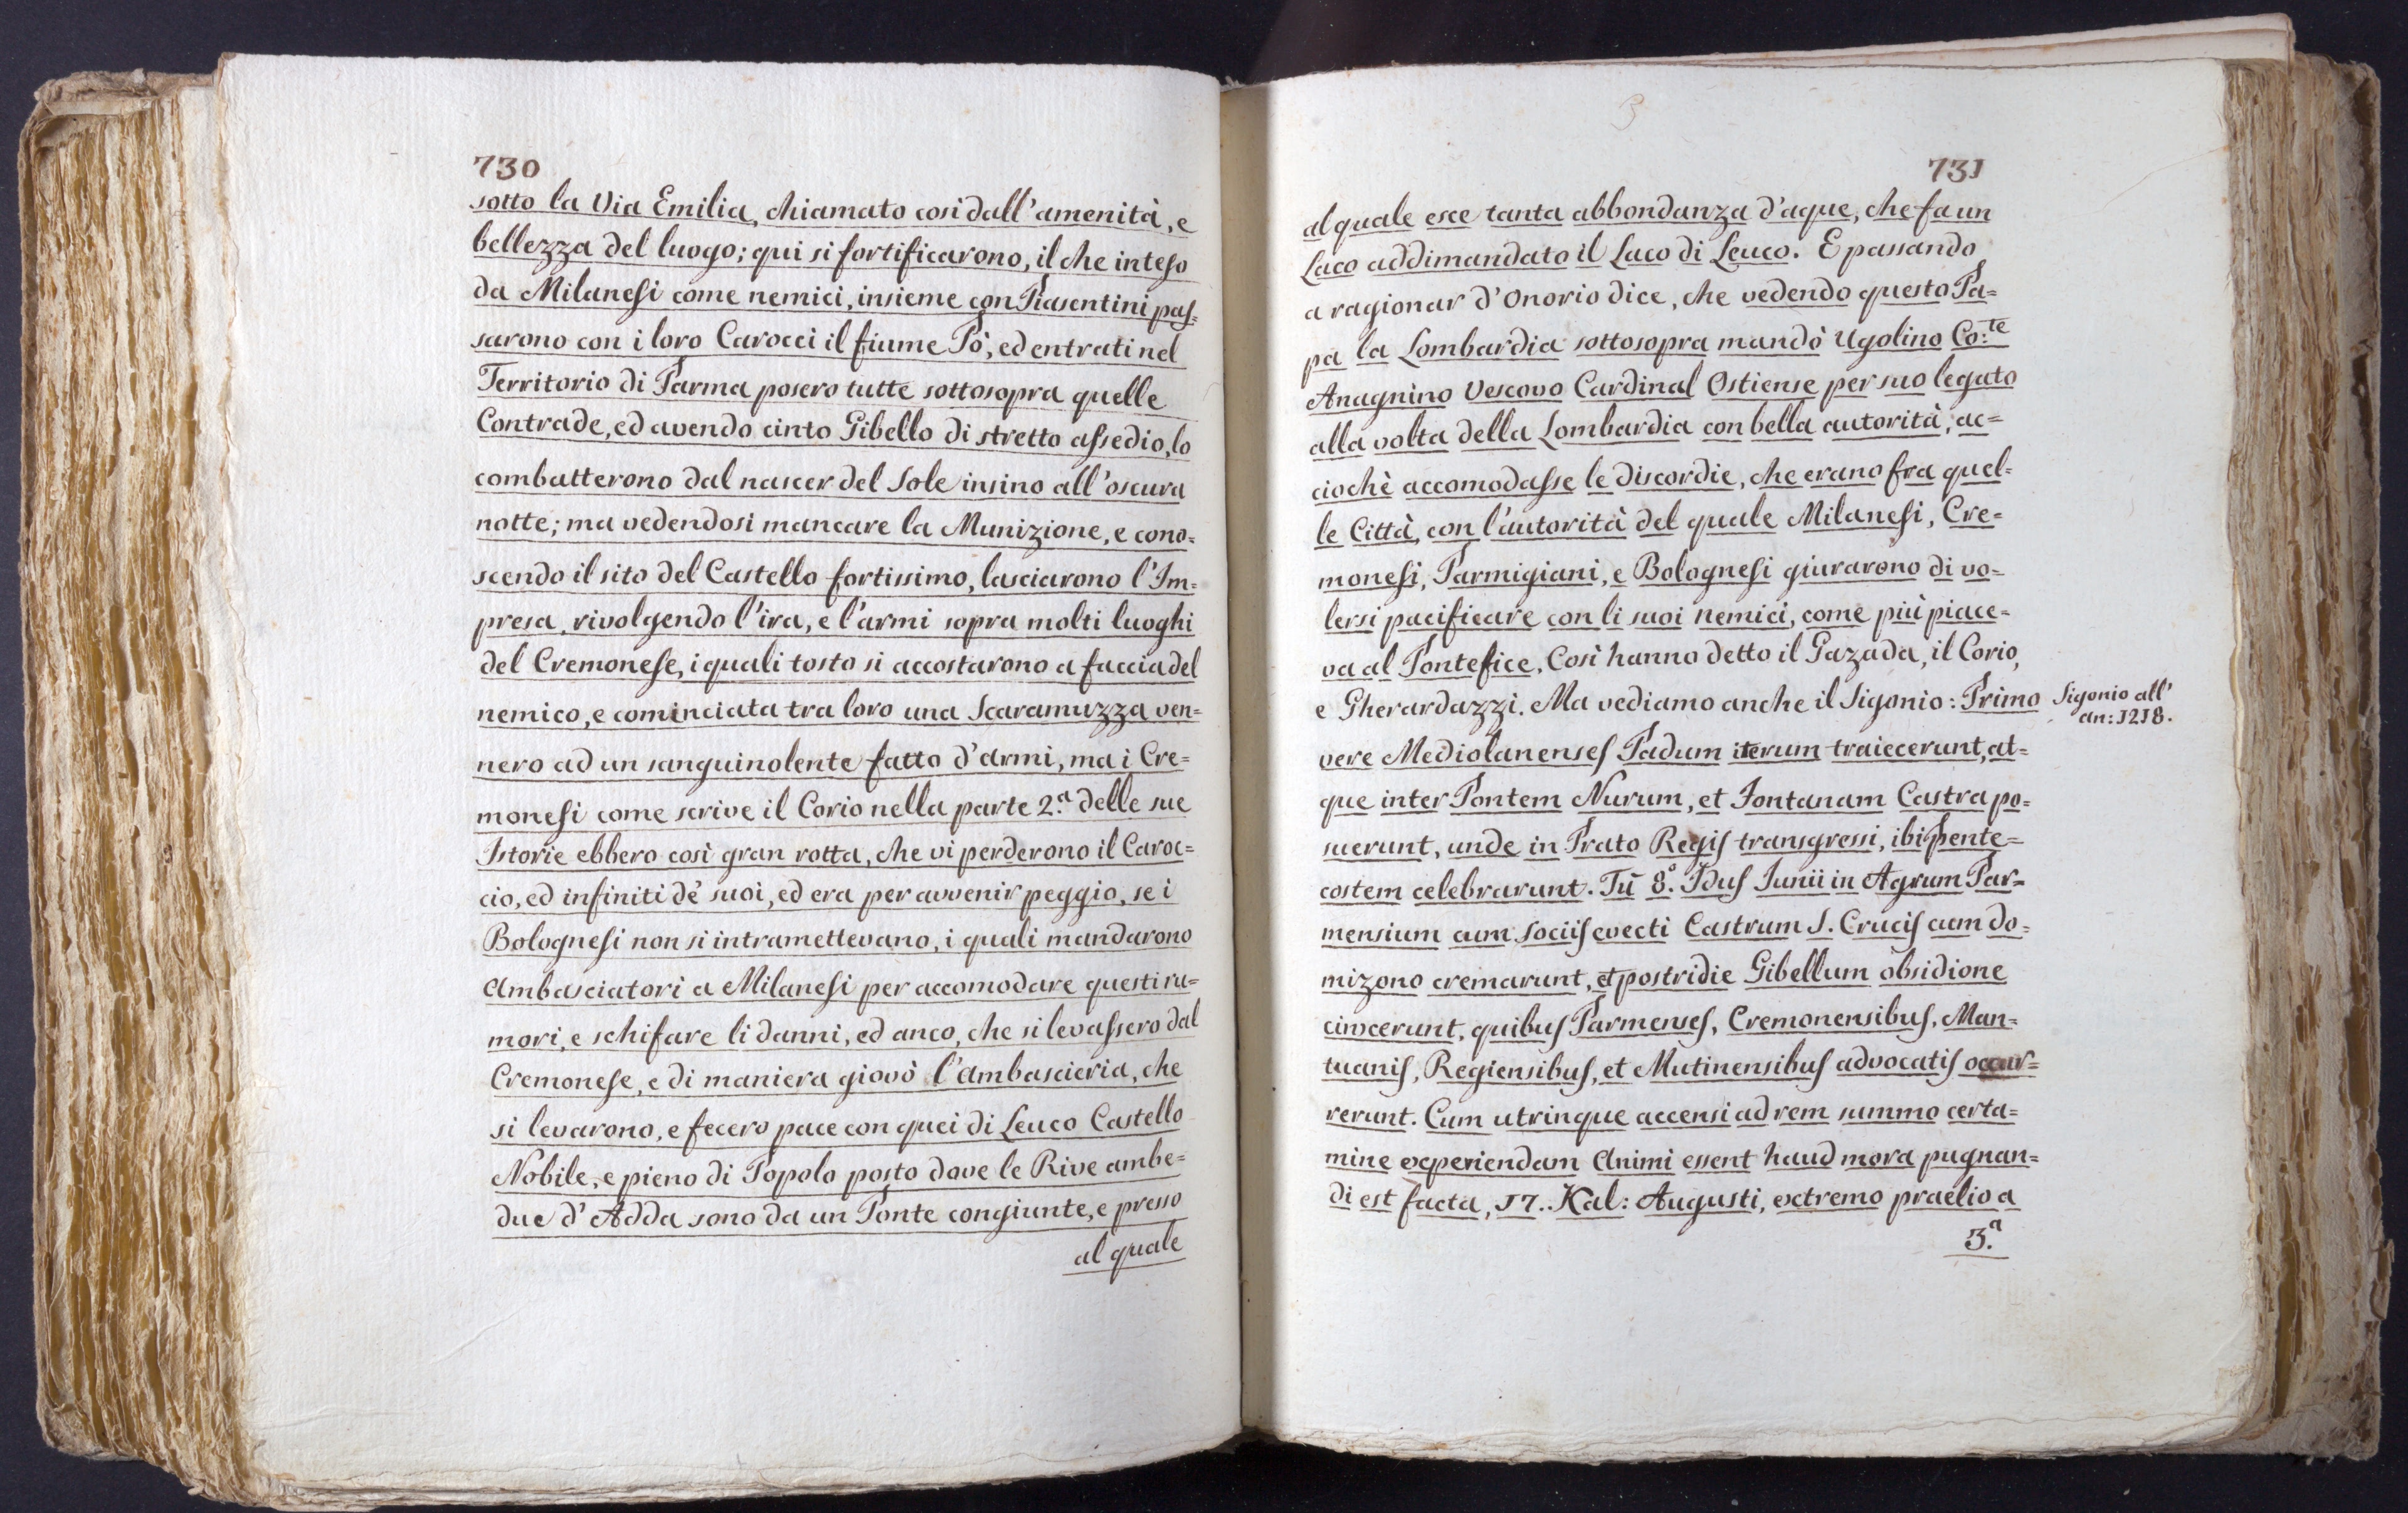 730
sotto la Via Emilia, chiamato così dall'amenità, e
bellezza del luogo; qui si fortificarono, il che inteso
da Milanesi come nemici, insieme con Piasentini pas=
sarono con i loro Carocci il fiume Pò, ed entrati nel
Territorio di Parma posero tutte sottosopra quelle
Contrade, ed avendo cinto Gibello di stretto assedio, lo
combatterono dal nascer del Sole insino all'oscura
notte; ma vedendosi mancare la Munizione, e cono=
scendo il sito del Castello fortissimo, lasciarono l'Im=
presa, rivolgendo l'ira, e l'armi sopra molti luoghi
del Cremonese, i quali tosto si accostarono a faccia del
nemico, e cominciata tra loro una Scaramuzza ven=
nero ad un sanguinolente fatto d'armi, ma i Cre=
monesi come scrive il Corio nella parte 2.ª delle sue
Istorie ebbero così gran rotta, che vi perderono il Caroc=
cio, ed infiniti de' suoi, ed era per avvenir peggio, se i
Bolognesi non si intramettevano, i quali mandarono
Ambasciatori a Milanesi per accomodare questi ru=
mori, e schifare li danni, ed anco, che si levassero dal
Cremonese, e di maniera giovò l'Ambascieria, che
si levarono, e fecero pace con quei di Leuco Castello
Nobile, e pieno di Popolo posto dove le Rive ambe=
due d'Adda sono da un Ponte congiunte, e presso
al quale
731
al quale esce tanta abbondanza d'aque, che fa un
Laco addimandato il Laco di Leuco. E passando
a ragionar d'Onorio dice, che vedendo questo Pa=
pa la Lombardia sottosopra mandò Ugolino Co:te
Anagnino Vescovo Cardinal Ostiense per suo legato
alla volta della Lombardia con bella autorità, ac=
ciochè accomodasse le discordie, che erano fra quel=
le Città, con l'autorità del quale Milanesi, Cre=
monesi, Parmigiani, e Bolognesi giurarono di vo=
lersi pacificare con li suoi nemici, come più piace=
va al Pontefice. Così hanno detto il Gazada, il Corio,
e Gherardazzi. Ma vediamo anche il Sigonio: Primo
Sigonio all'
an: 1218.
vere Mediolanenses Padum iterum traiecerunt, at=
que inter Pontem Nurum, et Fontanam Castra po=
suerunt, unde in Prato Regis transgressi, ibi Pente=
costem celebrarunt. Tū 8.º Idus Junii in Agrum Par=
mensium cum sociis evecti Castrum S. Crucis cum do=
mizono cremarunt, et postridie Gibellum obsidione
cinxcerunt, quibus Parmenses, Cremonensibus, Man=
tuanis, Regiensibus, et Mutinensibus advocatis occur=
rerunt. Cum utrinque accensi ad rem summo certa=
mine experiendam Animi essent haud mora pugnan=
di est facta, 17. Kal: Augusti, extremo praelio a
3.ª